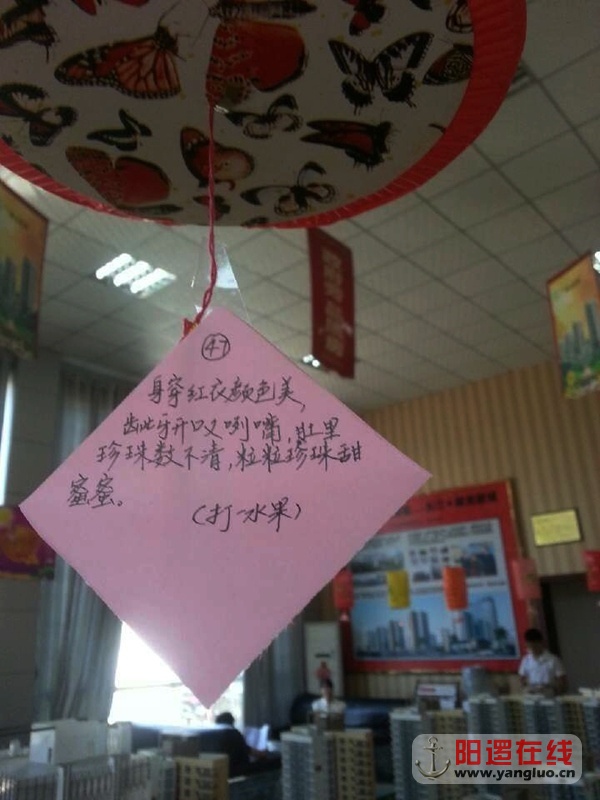 47
身穿红衣颜色美,
龇牙开口又咧嘴,肚里
珍珠数不清,粒粒珍珠甜
蜜蜜。 (打一水果)
阳逻在线
www.yangluo.cn